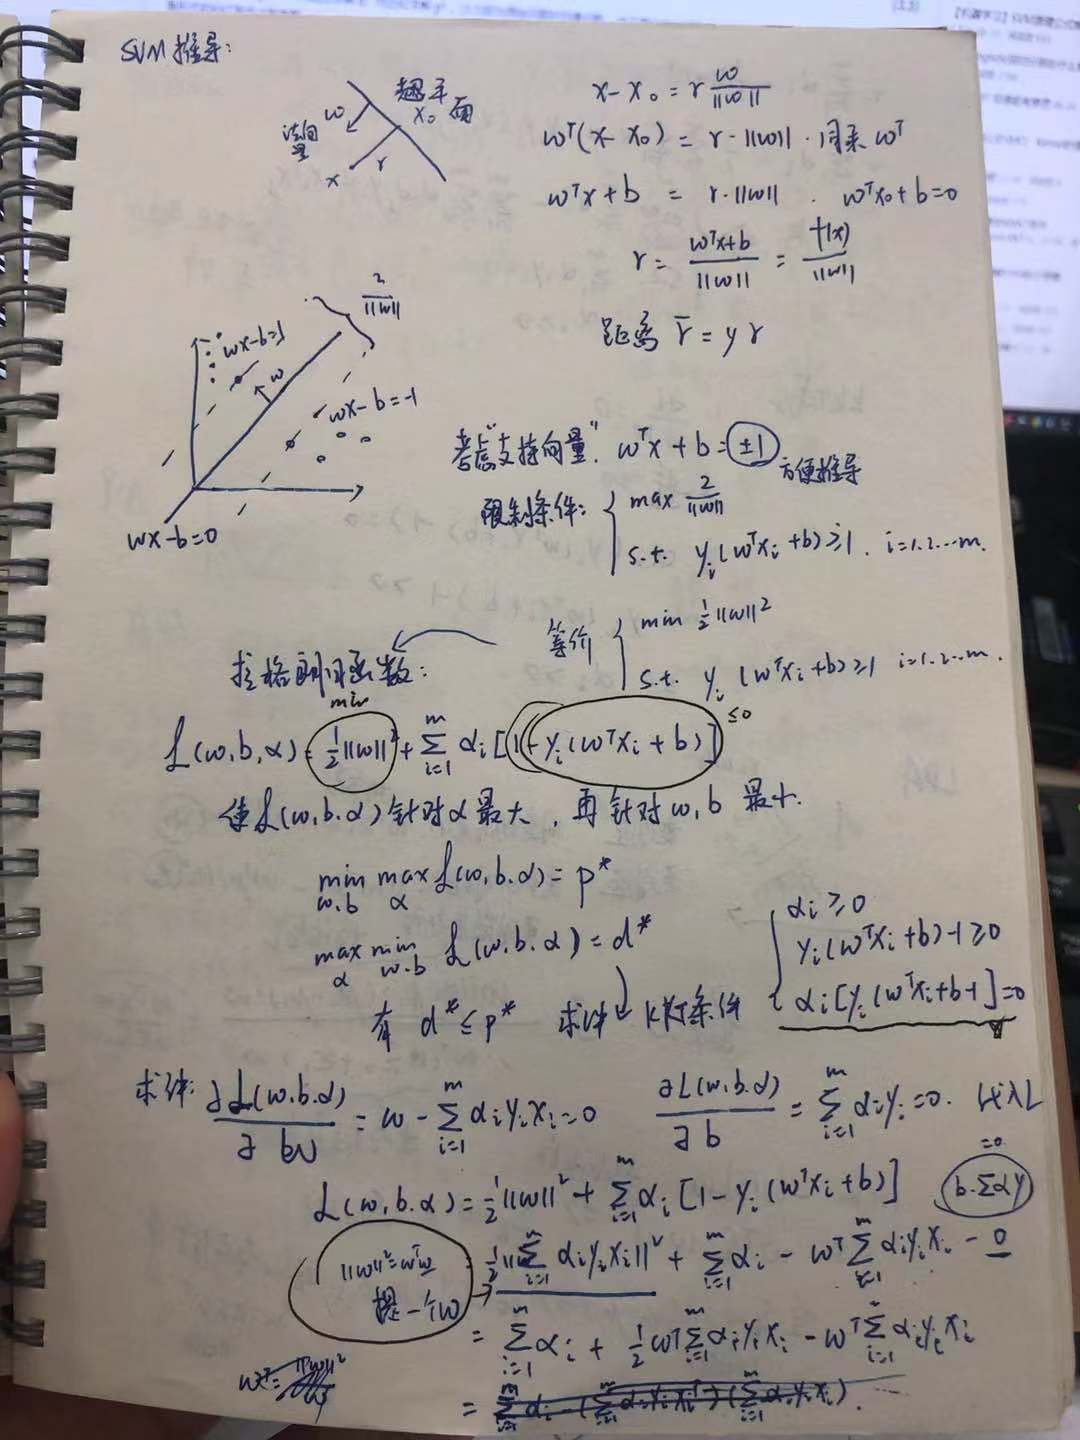 SVM推导:
超平面
x₀
w
法向量
x
r
x - x₀ = r w/||w||
wᵀ(x - x₀) = r·||w|| · 同乘 wᵀ
wᵀx + b = r·||w|| . wᵀx₀ + b = 0
r = (wᵀx+b)/||w|| = f(x)/||w||
距离 r̄ = y r
2/||w||
wx-b=1
w
wx-b=-1
wx-b=0
考虑"支持向量". wᵀx + b = ±1 方便推导
限制条件: { max 2/||w||
s.t. yᵢ(wᵀxᵢ + b) ≥ 1. i=1.2...m.
等价 { min ½||w||²
s.t. yᵢ (wᵀxᵢ + b) ≥ 1 i=1.2...m.
拉格朗日函数:
min
L(w,b,α) = ½||w||² + Σᵢ₌₁ᵐ αᵢ[1 - yᵢ(wᵀxᵢ + b)] ≤0
使L(w.b.α)针对α最大, 再针对w,b 最小.
min w.b max α L(w,b.α) = p*
max α min w.b L(w.b.α) = d*
有 d* ≤ p* 求解 KKT条件
{ αᵢ ≥ 0
yᵢ(wᵀxᵢ + b) - 1 ≥ 0
αᵢ[yᵢ(wᵀxᵢ+b-1] = 0
求解: ∂L(w.b.α)/∂w = w - Σᵢ₌₁ᵐ αᵢyᵢxᵢ = 0 ∂L(w.b.α)/∂b = Σᵢ₌₁ᵐ αᵢyᵢ = 0. 代入L
L(w,b.α) = ½||w||² + Σᵢ₌₁ᵐ αᵢ[1 - yᵢ(wᵀxᵢ+b)] b·Σαy =0
||w||²=wᵀw
提一个w
= ½||Σᵢ₌₁ᵐ αᵢyᵢxᵢ||² + Σᵢ₌₁ᵐ αᵢ - wᵀΣᵢ₌₁ᵐ αᵢyᵢxᵢ - 0
= Σᵢ₌₁ᵐ αᵢ + ½wᵀΣᵢ₌₁ᵐ αᵢyᵢxᵢ - wᵀΣᵢ₌₁ αᵢyᵢxᵢ